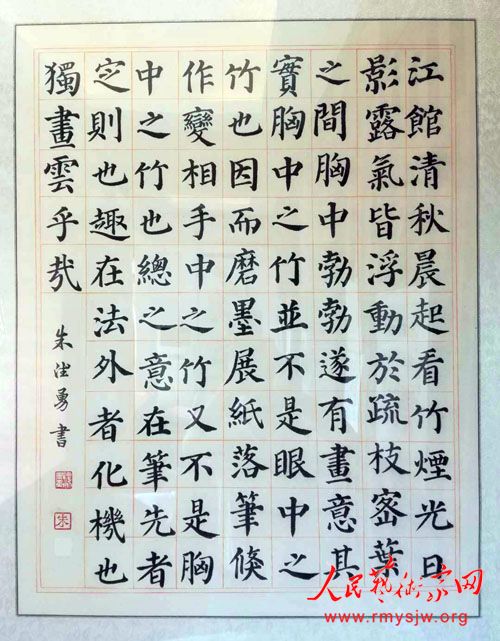 江館清秋晨起看竹煙光日
影露氣皆浮動於疏枝密葉
之間胸中勃勃遂有畫意其
實胸中之竹並不是眼中之
竹也因而磨墨展紙落筆倏
作變相手中之竹又不是胸
中之竹也總之意在筆先者
定則也趣在法外者化機也
獨畫雲乎哉
朱勇書
朱
人民藝術家网
www.rmysjw.org